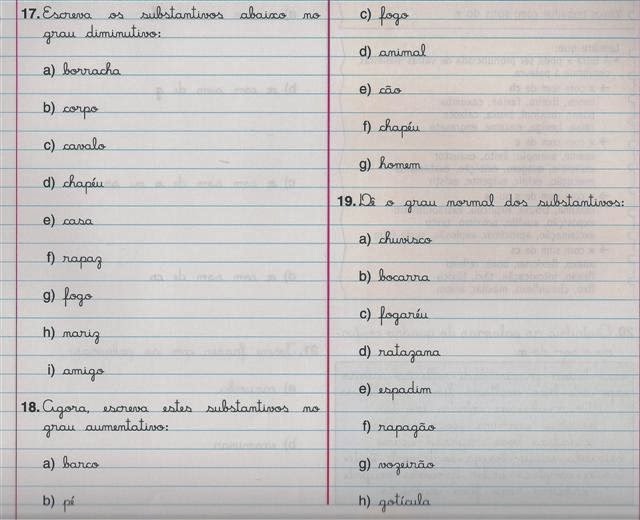 17. Escreva os substantivos abaixo no
grau diminutivo:
a) borracha
b) corpo
c) cavalo
d) chapéu
e) casa
f) rapaz
g) fogo
h) nariz
i) amigo
18. Agora, escreva estes substantivos no
grau aumentativo:
a) barco
b) pé
c) fogo
d) animal
e) cão
f) chapéu
g) homem
19. Dê o grau normal dos substantivos:
a) chuvisco
b) bocarra
c) fogaréu
d) ratazana
e) espadim
f) rapagão
g) vozeirão
h) gotícula